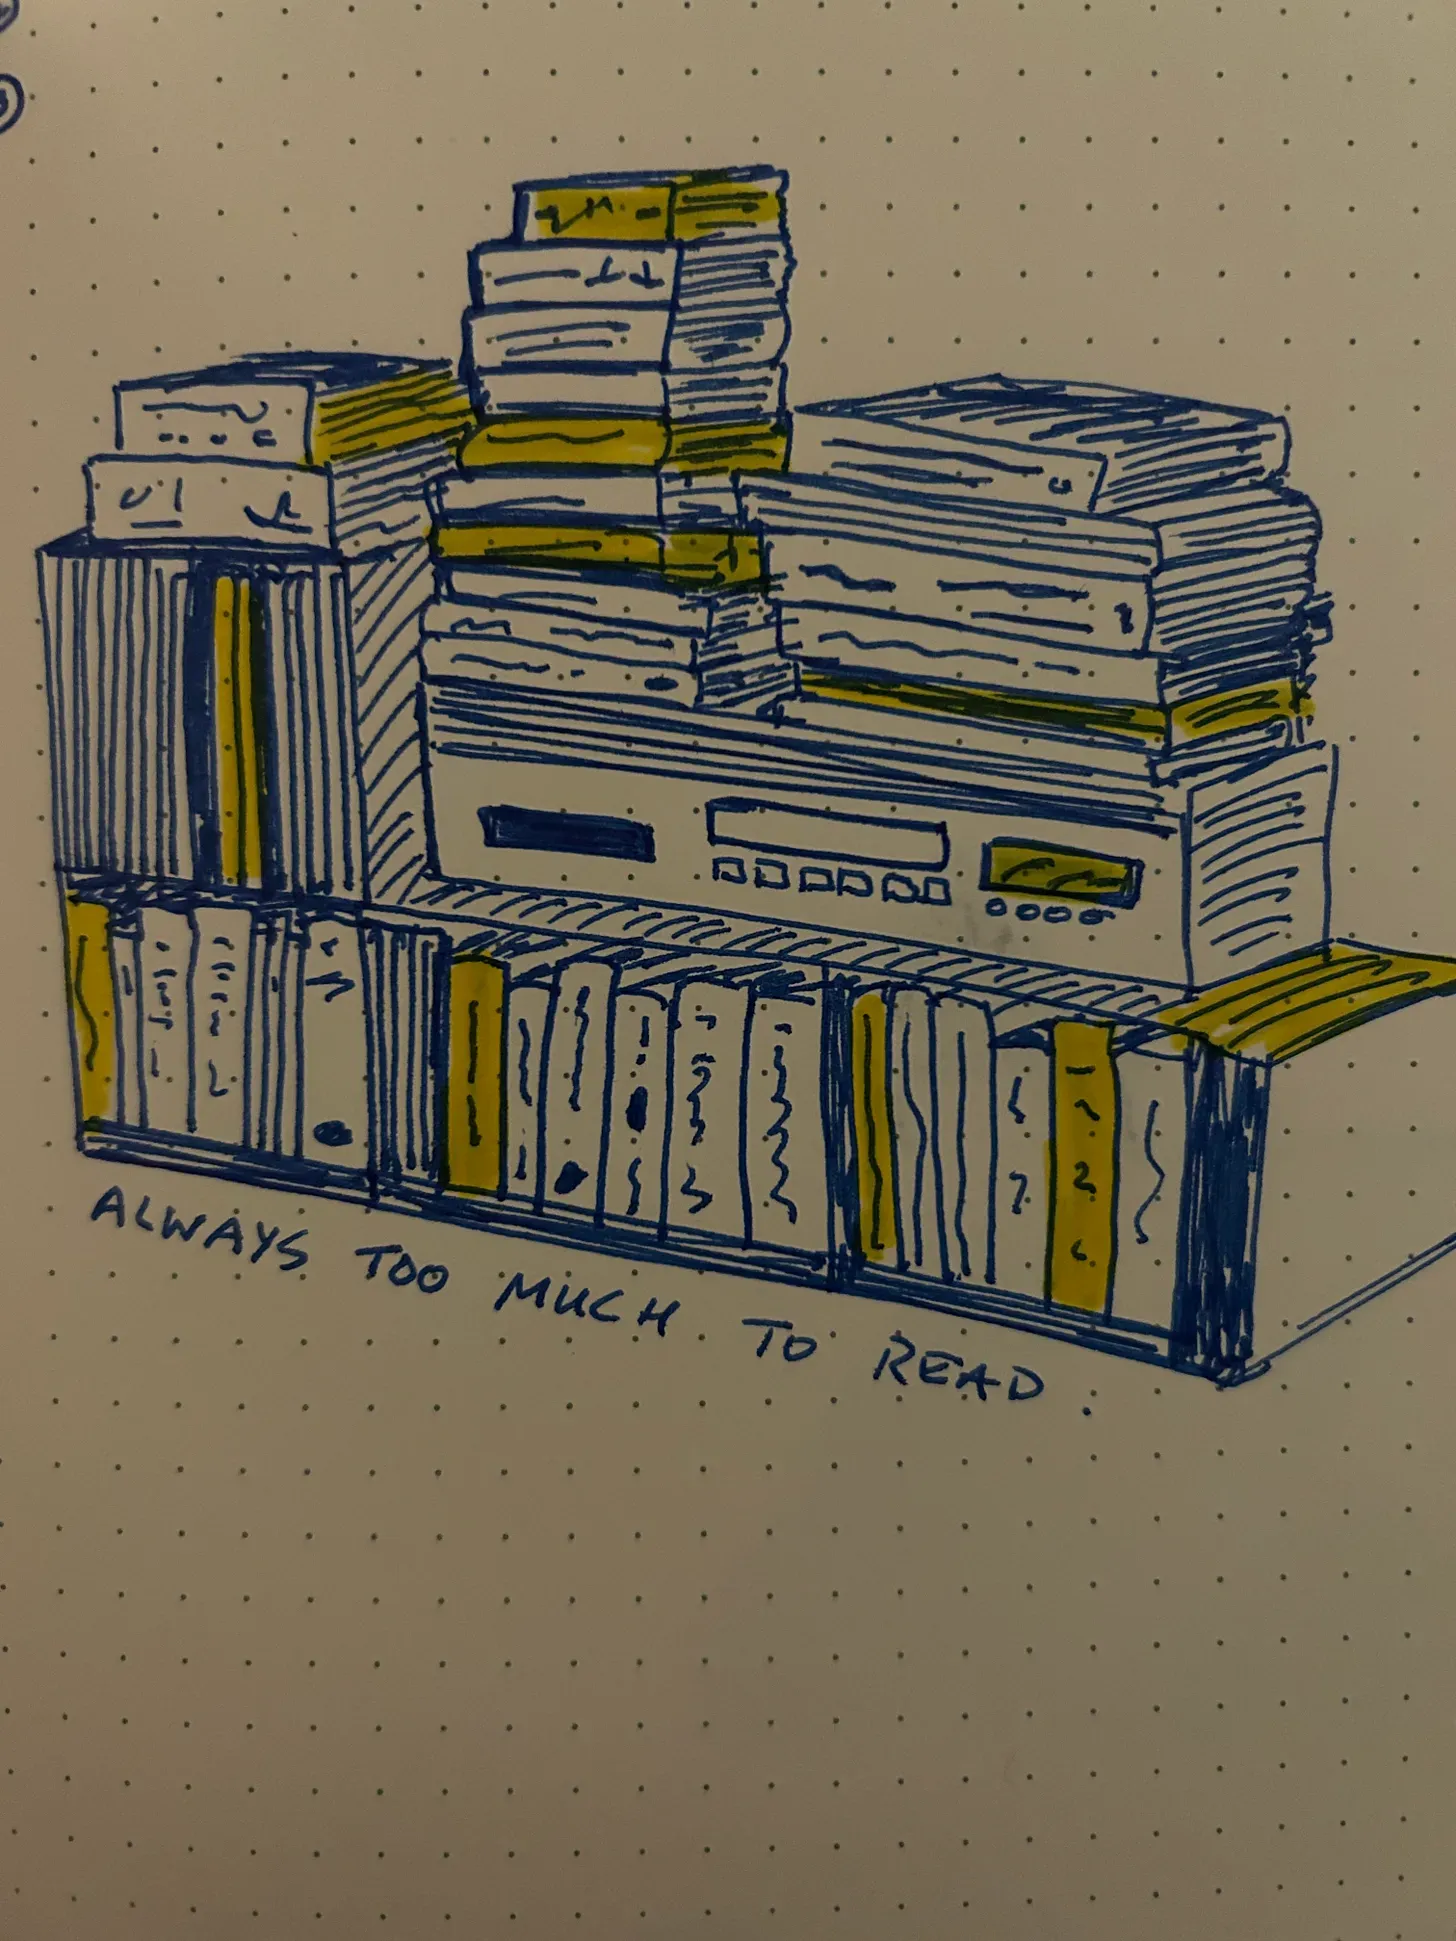 ALWAYS TOO MUCH TO READ.